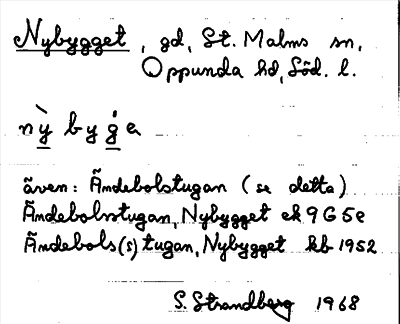 Nybygget, gd, St. Malms sn,
Oppunda hd, Söd. l.
nỳ byg̀e
även: Ändebolstugan (se detta)
Ändebolnstugan, Nybygget ek 9G5e
Ändebols(s)tugan, Nybygget kb 1952
S. Strandberg 1968